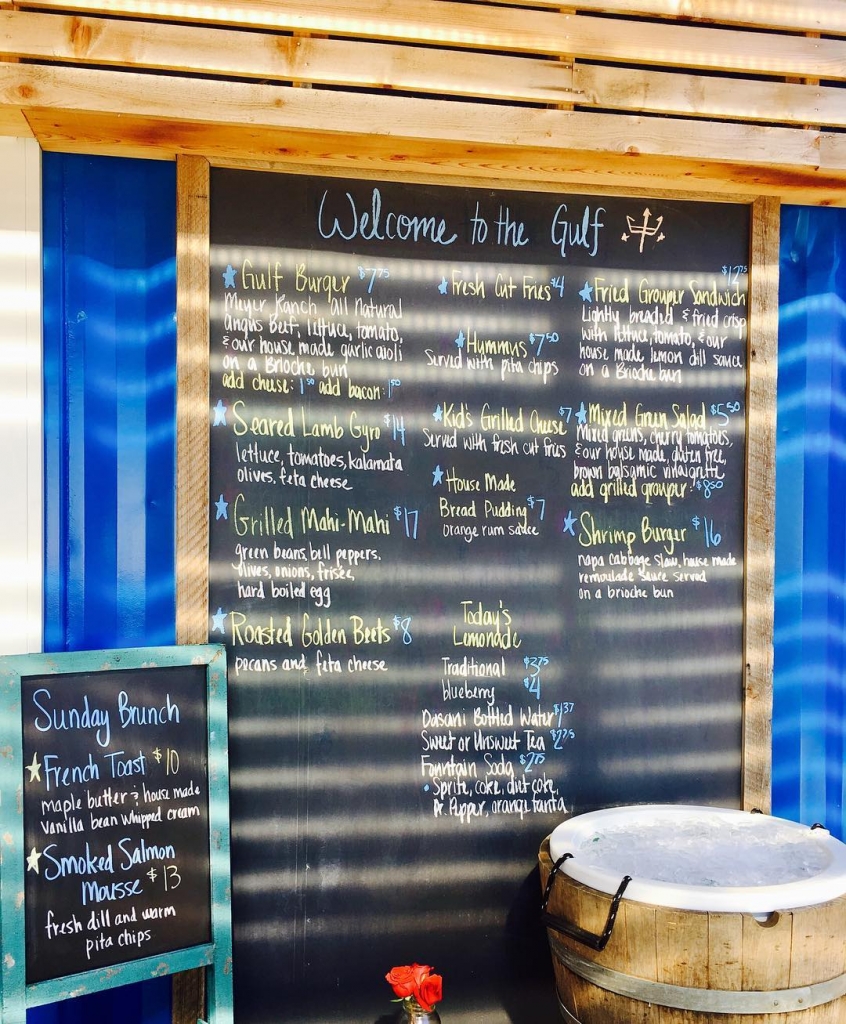 Welcome to the Gulf
Gulf Burger $7.75
Meyer Ranch All Natural
Angus Beef, lettuce, tomato,
& our house made garlic aioli
on a Brioche bun
add cheese: 1.50 add bacon: 1.50
Seared Lamb Gyro $14
lettuce, tomatoes, kalamata
olives, feta cheese
Grilled Mahi-Mahi $17
green beans, bell peppers,
olives, onions, frisée,
hard boiled egg
Roasted Golden Beets $8
pecans and feta cheese
Fresh Cut Fries $4
Hummus $7.50
Served with pita chips
Kid's Grilled Cheese $7
Served with fresh cut fries
House Made
Bread Pudding $7
orange rum sauce
Today's
Lemonade
Traditional $3.75
blueberry $4
Dasani Bottled Water $1.37
Sweet or Unsweet Tea $2.75
Fountain Soda $2.75
• Sprite, coke, diet coke,
Dr. Pepper, orange fanta
$12.75
Fried Grouper Sandwich
Lightly breaded & fried crisp
with lettuce, tomato, & our
house made lemon dill sauce
on a Brioche bun
Mixed Green Salad $5.50
Mixed greens, cherry tomatoes,
& our house made, gluten free,
brown balsamic vinaigrette
add grilled grouper: $8.50
Shrimp Burger $16
napa cabbage slaw, house made
remoulade sauce served
on a brioche bun
Sunday Brunch
French Toast $10
maple butter & house made
vanilla bean whipped cream
Smoked Salmon
Mousse $13
fresh dill and warm
pita chips